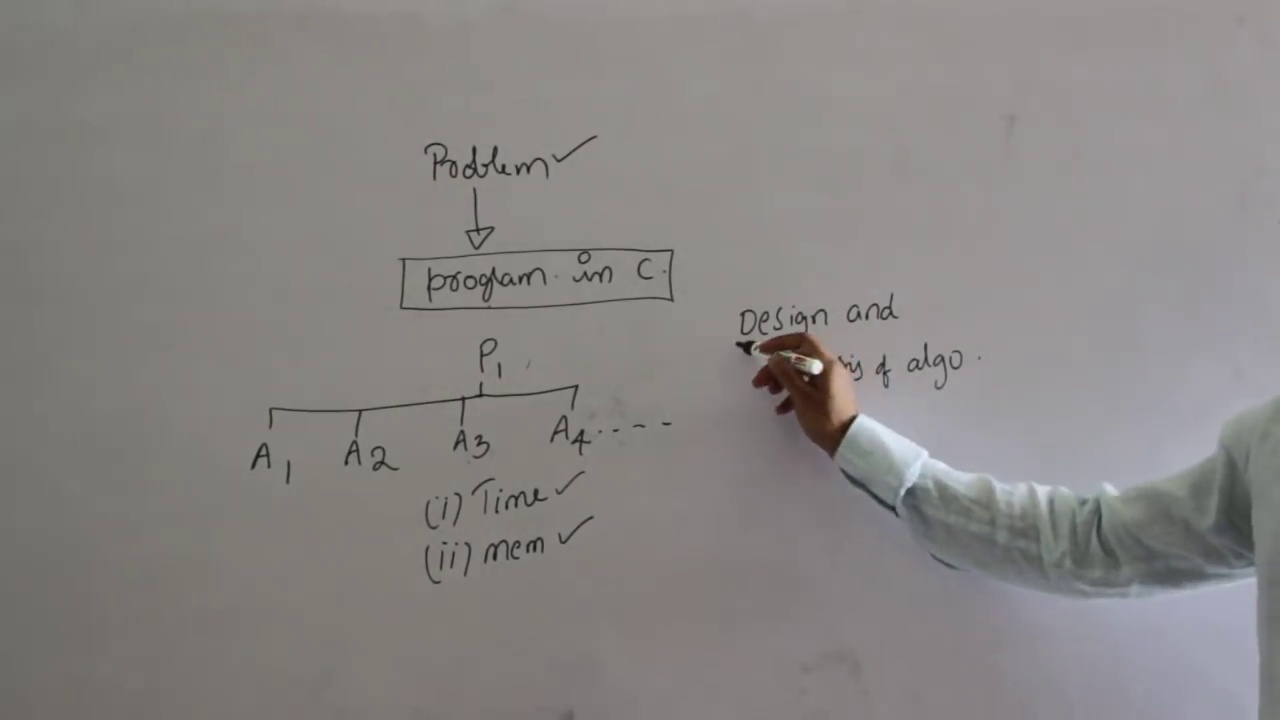 Problem ✓
program in C.
P1
A1 A2 A3 A4.....
(i) Time ✓
(ii) mem ✓
Design and
of algo.